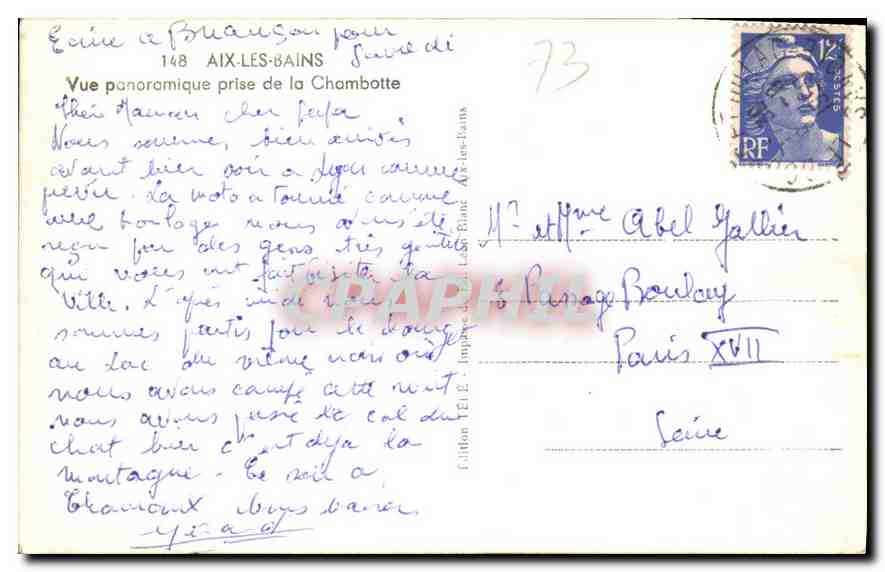 Ecrire a Briançon pour
Samedi
148 AIX-LES-BAINS
Vue panoramique prise de la Chambotte
73
12F
POSTES
RF
Cher Maman cher papa
Nous somme, bien arrivés
avant bier soir a Lyon comme
prévu. La moto a tourné comme
une horloge nous avons été
reçu par des gens très gentils
qui nous ont fait visiter la
ville. L'après midi nous
sommes partis pour le bourget
au Lac du même nom où
nous avons campé cette nuit
nous avons passé le col du
chat bier c'est déja la
montagne. Ce soir a
Chamonix bons baisers
Edition TÉLÉ - Impasse du Léon Blanc Aix-les-Bains
CPAPHIL
Mr et Mme Abel Gallier
8 Passage Boulay
Paris XVII
Seine